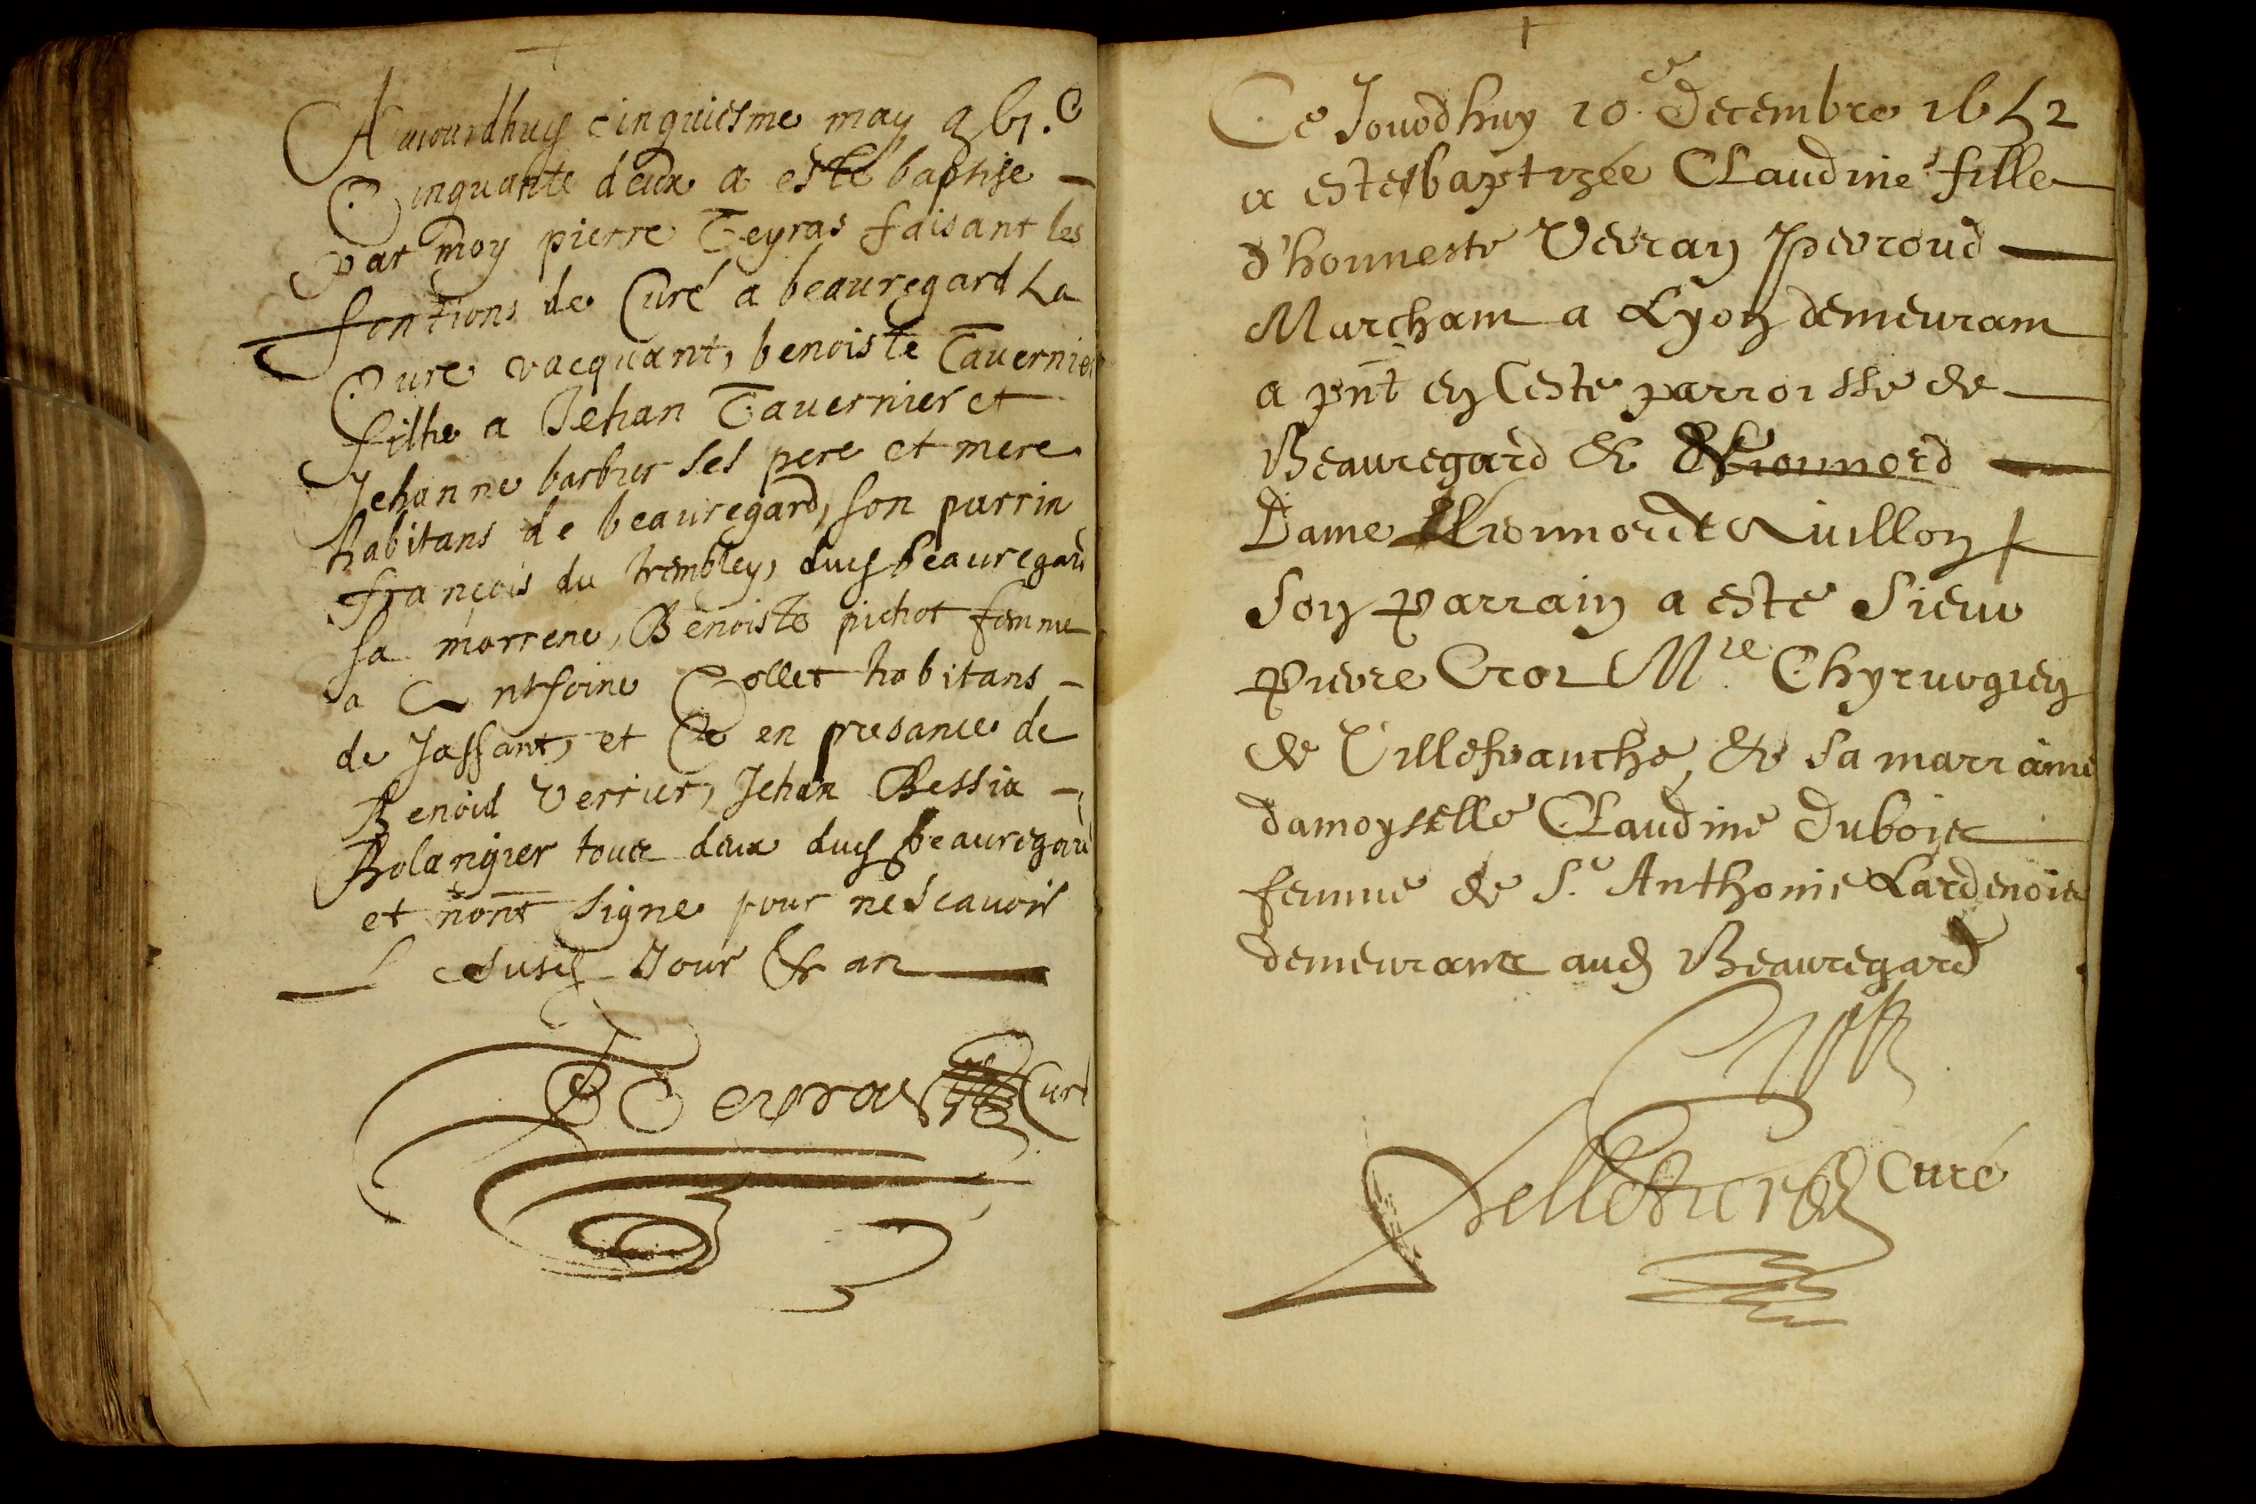 Aujourdhuy cinquiesme may g bi.C
Cinquante deux a esté baptise
par moy pierre Teyras faisant les
fontions de Curé a beauregard La
Cure vacquant, benoiste Tavernier
filhe a Jehan Tavernier et
Jehanne barbier ses pere et mere
habitans de beauregard, son parrin
françois du trembley, dud beauregard
sa marrene, Benoiste pichot femme
a Anthoine Collet habitans
de Jassant, et Ce en presance de
Benoid Verrier, Jehan Bessia
Bolangier tous deux dud beauregard
et nont signe pour ne scavoir
Le susd Jour & an
P Teyras Curé
Ce Jourdhuy 10e Decembre 1652
a este baptizée Claudine fille
d'honneste Verran Perroud
Marchant a Lyon demeurant
a pnt en Ceste parroisse de
Beauregard & de
Dame Lionnorde Quillon
Son parrain a este Sieur
Pierre Croi Mre Chyrurgien
de Villefranche, & sa marraine
damoyselle Claudine Dubois
femme de Sr Anthonie Lardenois
demeurans aud Beauregard
Pelletier Curé